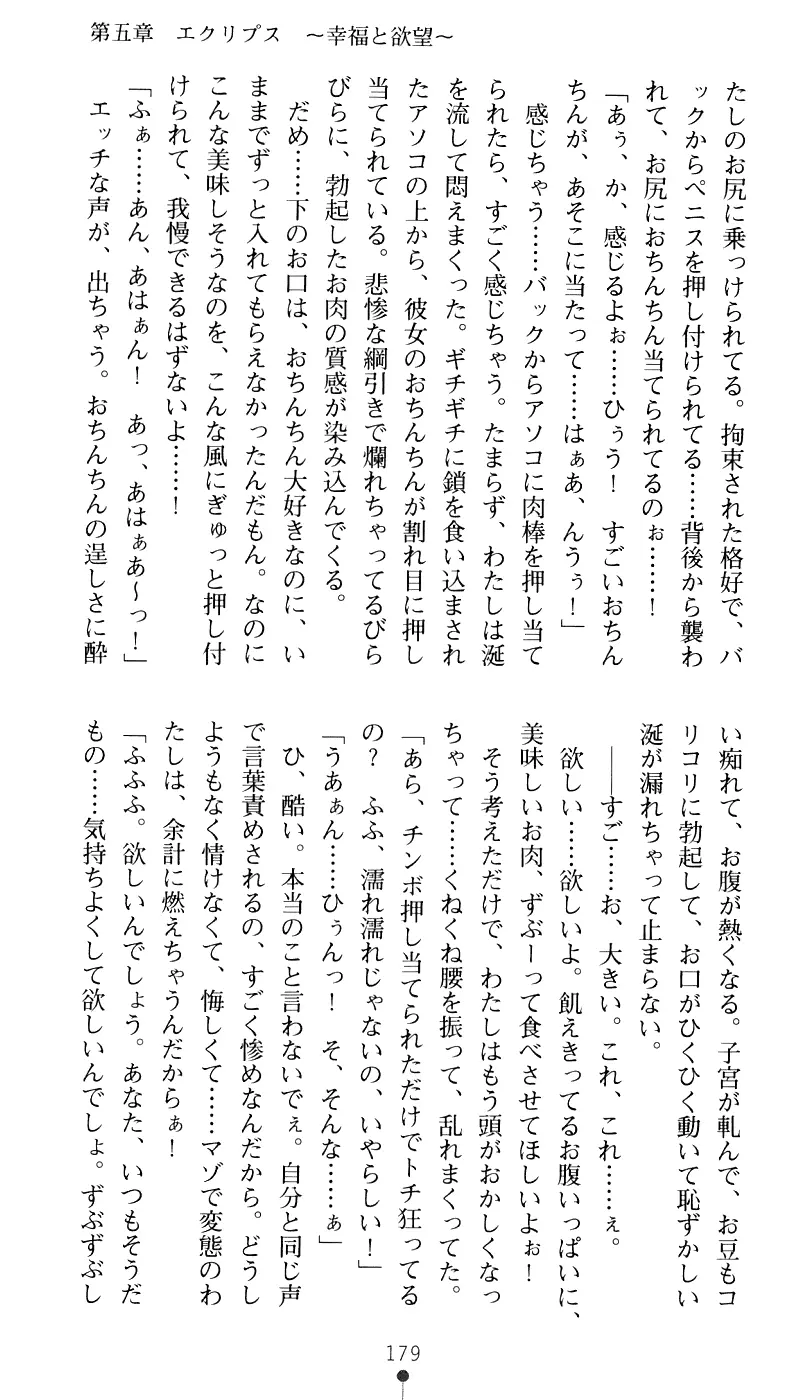 第五章　エクリプス　～幸福と欲望～
たしのお尻に乗っけられてる。拘束された格好で、バ
ックからペニスを押し付けられてる……背後から襲わ
れて、お尻におちんちん当てられてるのぉ……！
「あぅ、か、感じるよぉ……ひぅう！　すごいおちん
ちんが、あそこに当たって……はぁあ、んうぅ！」
　感じちゃう……バックからアソコに肉棒を押し当て
られたら、すごく感じちゃう。たまらず、わたしは涎
を流して悶えまくった。ギチギチに鎖を食い込まされ
たアソコの上から、彼女のおちんちんが割れ目に押し
当てられている。悲惨な綱引きで爛れちゃってるびら
びらに、勃起したお肉の質感が染み込んでくる。
　だめ……下のお口は、おちんちん大好きなのに、い
ままでずっと入れてもらえなかったんだもん。なのに
こんな美味しそうなのを、こんな風にぎゅっと押し付
けられて、我慢できるはずないよ……！
「ふぁ……あん、あはぁん！　あっ、あはぁあ～っ！」
　エッチな声が、出ちゃう。おちんちんの逞しさに酔
い痴れて、お腹が熱くなる。子宮が軋んで、お豆もコ
リコリに勃起して、お口がひくひく動いて恥ずかしい
涎が漏れちゃって止まらない。
　――すご……お、大きい。これ、これ……ぇ。
　欲しい……欲しいよ。飢えきってるお腹いっぱいに、
美味しいお肉、ずぶーって食べさせてほしいよぉ！
　そう考えただけで、わたしはもう頭がおかしくなっ
ちゃって……くねくね腰を振って、乱れまくってた。
「あら、チンボ押し当てられただけでトチ狂ってる
の？　ふふ、濡れ濡れじゃないの、いやらしい！」
「うあぁん……ひぅんっ！　そ、そんな……ぁ」
　ひ、酷い。本当のこと言わないでぇ。自分と同じ声
で言葉責めされるの、すごく惨めなんだから。どうし
ようもなく情けなくて、悔しくて……マゾで変態のわ
たしは、余計に燃えちゃうんだからぁ！
「ふふふ。欲しいんでしょう。あなた、いつもそうだ
もの……気持ちよくして欲しいんでしょ。ずぶずぶし
179